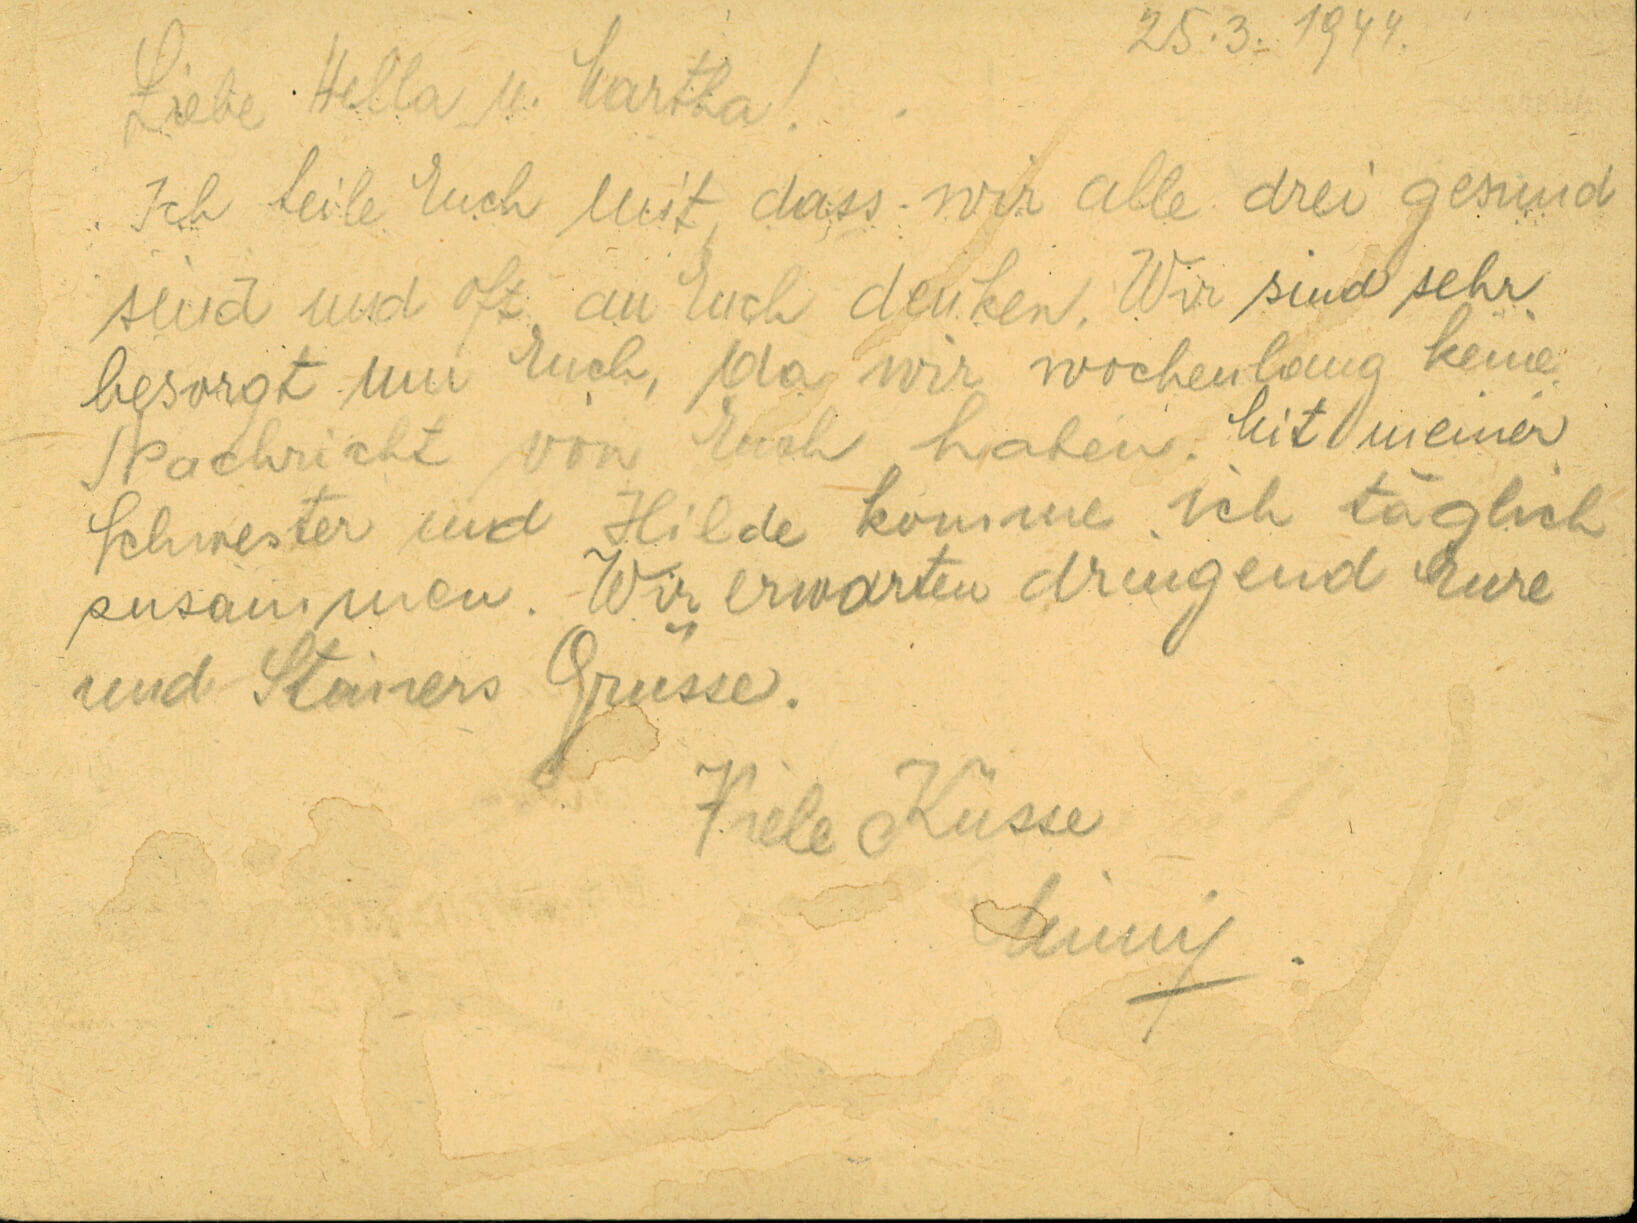 25.3.1944.
Liebe Hella u. Martha!
Ich teile Euch mit, dass wir alle drei gesund
sind und oft an Euch denken. Wir sind sehr
besorgt um Euch, da wir wochenlang keine
Nachricht von Euch haben. Mit meiner
Schwester und Hilde komme ich täglich
zusammen. Wir erwarten dringend Eure
und Steiners Grüsse.
Viele Küsse